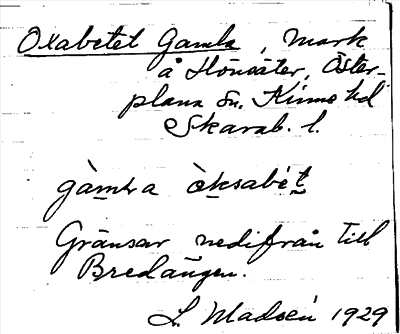 Oxabetet Gamla, mark
å Hönsäter, Öster-
plana Sn. Kinne hd
Skarab. l.
gàmla òksabét
Gränsar nedifrån till
Bredängen.
L. Madsén 1929